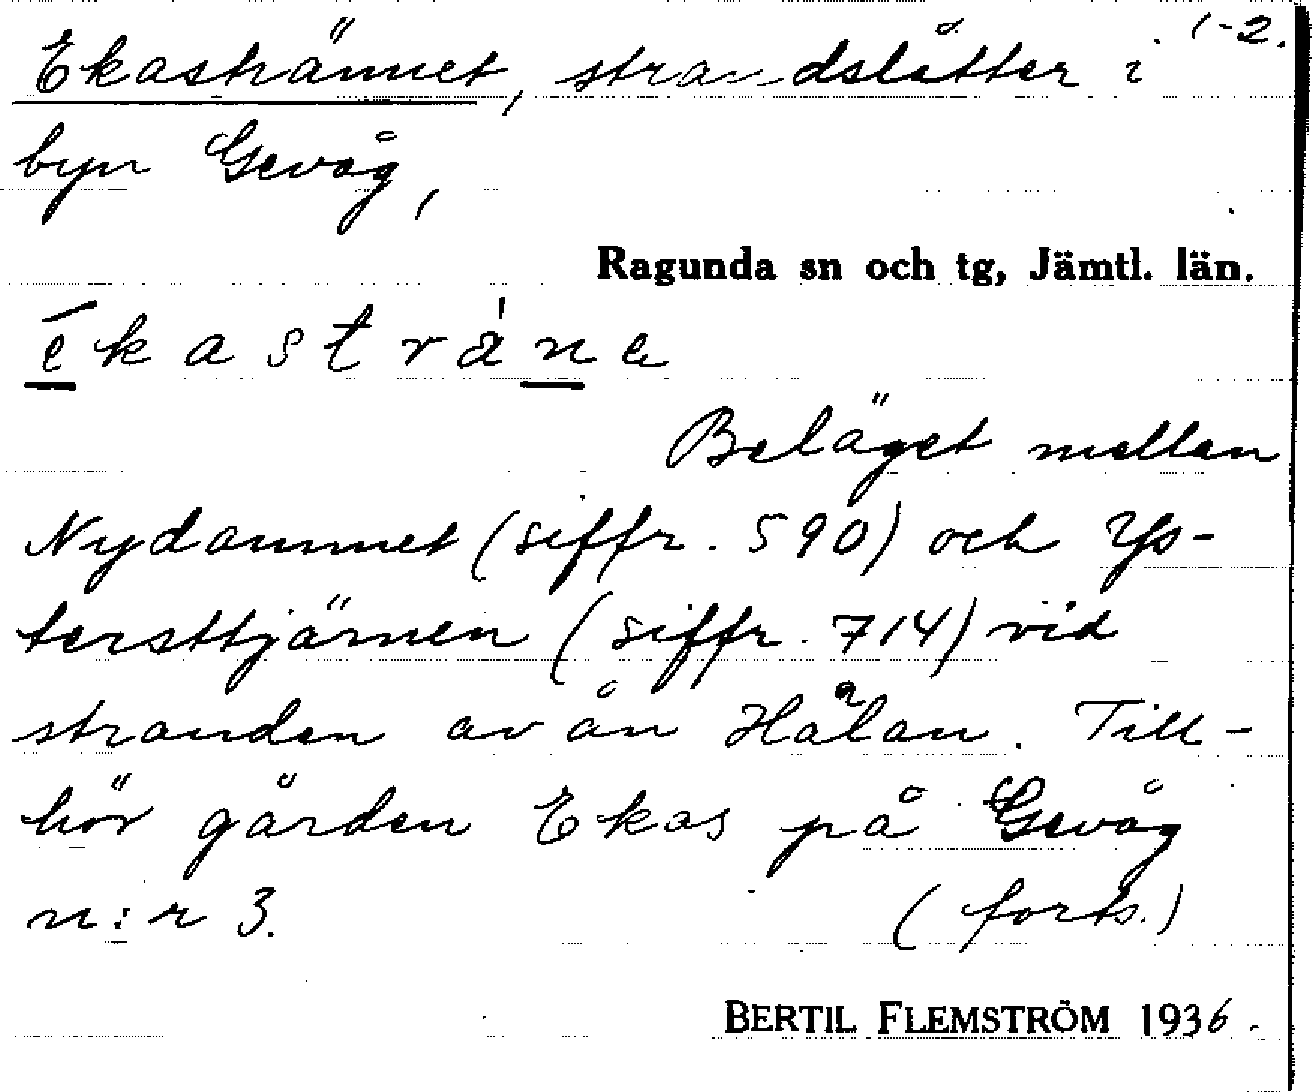 1-2.
Ekastrännet, strandslåtter i
byn Gevåg,
Ragunda sn och tg, Jämtl. län.
ēkastränɛ
Beläget mellan
Nydammet (siffr. 590) och Ys-
tersttjärnen (siffr. 714) vid
stranden av ån Hålan. Till-
hör gården Ekas på Gevåg
n:r 3. (forts.)
BERTIL FLEMSTRÖM 1936.